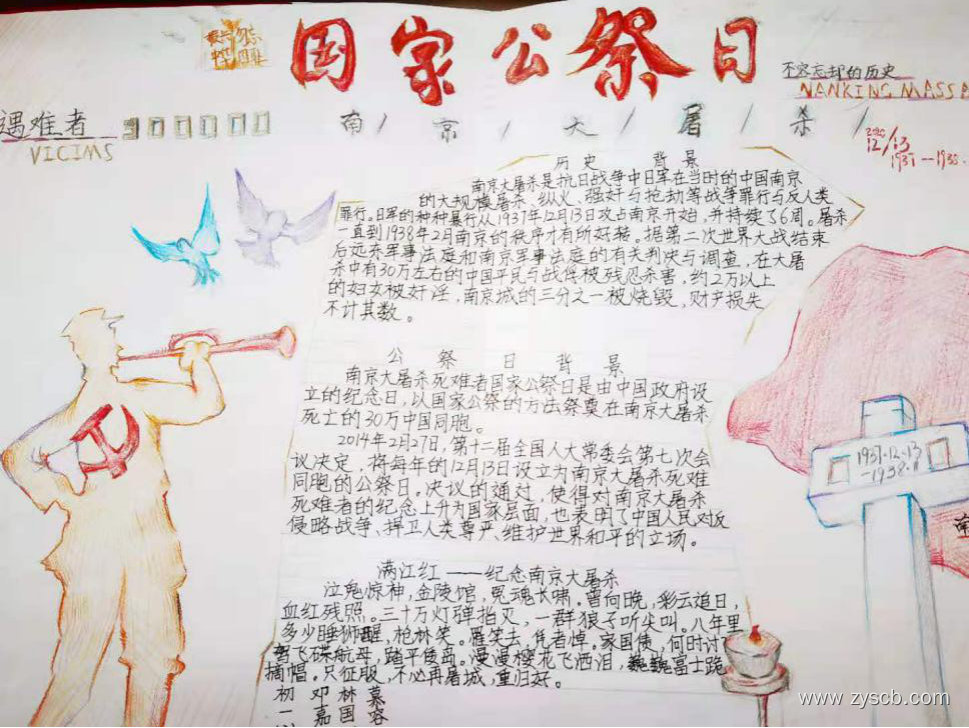 国家公祭日
不容忘却的历史
NANKING MASSA
遇难者 300000
VICIMS
南 / 京 / 大 / 屠 / 杀 /
2020
12/13
1937—1938.
历史背景
南京大屠杀是抗日战争中日军在当时的中国南京
的大规模屠杀、纵火、强奸与抢劫等战争罪行与反人类
罪行。日军的种种暴行从1937年12月13日攻占南京开始,并持续了6周。屠杀
一直到1938年2月南京的秩序才有所好转。据第二次世界大战结束
后远东军事法庭和南京军事法庭的有关判决与调查,在大屠
杀中有30万左右的中国平民与战俘被残忍杀害,约2万以上
的妇女被奸淫,南京城的三分之一被烧毁,财产损失
不计其数。
公祭日背景
南京大屠杀死难者国家公祭日是由中国政府设
立的纪念日,以国家公祭的方法祭奠在南京大屠杀
死亡的30万中国同胞。
2014年2月27日,第十二届全国人大常委会第七次会
议决定,将每年的12月13日设立为南京大屠杀死难
同胞的公祭日。决议的通过,使得对南京大屠杀
死难者的纪念上升为国家层面,也表明了中国人民对反
侵略战争、捍卫人类尊严、维护世界和平的立场。
1937·12·13
-1938·
南
满江红——纪念南京大屠杀
泣鬼惊神,金陵馆,冤魂长啸。曾向晚,彩云追日,
血红残照。三十万灯弹指灭,一群狼子听尖叫。八年里
多少睡狮醒,枪林笑。雁笑去,隹者悼。家国债,何时讨了
驾飞碟航母,踏平倭岛。漫漫樱花飞洒泪,巍巍富士跪
摘帽。只征服,不必再屠城,重归好。
初邓林慕
一嘉国容
www.zyscb.com